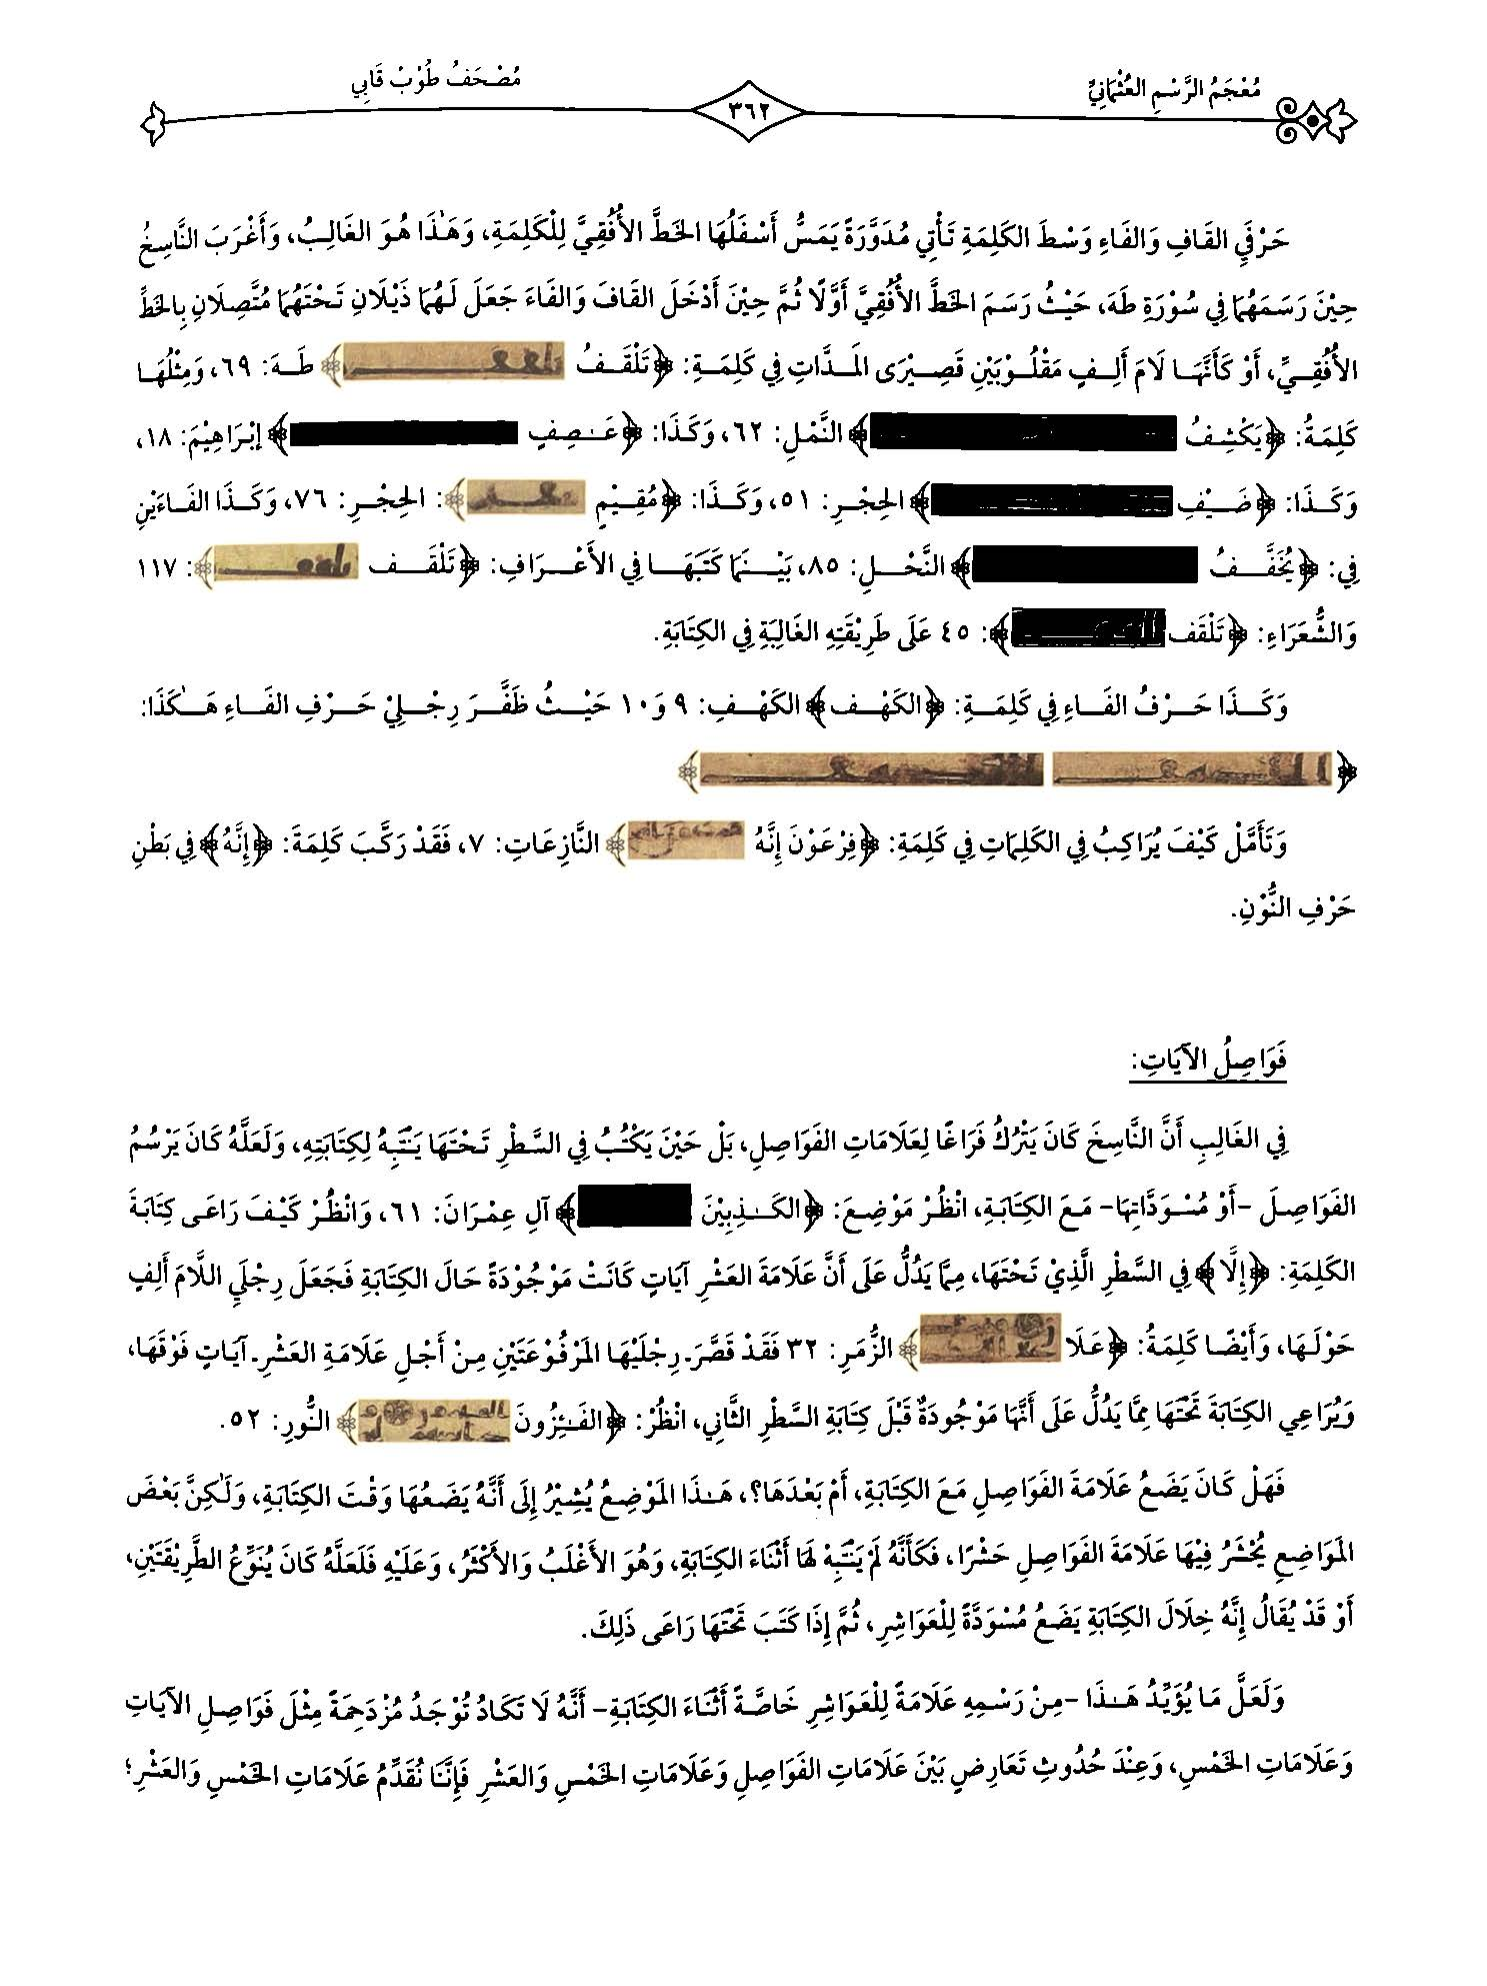 مُعْجَمُ الرَّسْمِ العُثْمَانِيِّ
٣٦٢
مُصْحَفُ طُوْبْ قَابِي
حَرْفَيِ القَافِ وَالفَاءِ وَسْطَ الكَلِمَةِ تَأْتِي مُدَوَّرَةً يَمَسُّ أَسْفَلُهَا الخَطَّ الأُفُقِيَّ لِلْكَلِمَةِ، وَهَٰذَا هُوَ الغَالِبُ، وَأَغْرَبَ النَّاسِخُ
حِيْنَ رَسَمَهُمَا فِي سُوْرَةِ طَهَ، حَيْثُ رَسَمَ الخَطَّ الأُفُقِيَّ أَوَّلًا ثُمَّ حِيْنَ أَدْخَلَ القَافَ وَالفَاءَ جَعَلَ لَهُمَا ذَيْلَانِ تَحْتَهُمَا مُتَّصِلَانِ بِالخَطِّ
الأُفُقِيِّ، أَوْ كَأَنَّهَا لَامَ أَلِفٍ مَقْلُوْبَيْنِ قَصِيْرَى المَدَّاتِ فِي كَلِمَةِ: ﴿تَلْقَفُ ﴾ طَهَ: ٦٩، وَمِثْلُهَا
كَلِمَةُ: ﴿يَكْشِفُ ﴾ النَّمْلِ: ٦٢، وَكَذَا: ﴿عَـٰصِفٍ ﴾ إِبْرَاهِيْمَ: ١٨،
وَكَذَا: ﴿ضَيْفِ ﴾ الحِجْرِ: ٥١، وَكَذَا: ﴿مُقِيْمٍ ﴾: الحِجْرِ: ٧٦، وَكَذَا الفَاءَيْنِ
فِي: ﴿يُخَفَّفُ ﴾ النَّحْلِ: ٨٥، بَيْنَمَا كَتَبَهَا فِي الأَعْرَافِ: ﴿تَلْقَف ﴾: ١١٧
وَالشُّعَرَاءِ: ﴿تَلْقَف ﴾: ٤٥ عَلَى طَرِيْقَتِهِ الغَالِبَةِ فِي الكِتَابَةِ.
وَكَذَا حَرْفُ الفَاءِ فِي كَلِمَةِ: ﴿الكَهْف﴾ الكَهْفِ: ٩ وَ١٠ حَيْثُ ظَفَّرَ رِجْلِيْ حَرْفِ الفَاءِ هَٰكَذَا:
﴿ ﴾
وَتَأَمَّلْ كَيْفَ يُرَاكِبُ فِي الكَلِمَاتِ فِي كَلِمَةِ: ﴿فِرْعَوْنَ إِنَّهُ ﴾ النَّازِعَاتِ: ٧، فَقَدْ رَكَّبَ كَلِمَةَ: ﴿إِنَّهُ﴾ فِي بَطْنِ
حَرْفِ النُّوْنِ.
فَوَاصِلُ الآيَاتِ:
فِي الغَالِبِ أَنَّ النَّاسِخَ كَانَ يَتْرُكُ فَرَاغًا لِعَلَامَاتِ الفَوَاصِلِ، بَلْ حَيْنَ يَكْتُبُ فِي السَّطْرِ تَحْتَهَا يَنْتَبِهُ لِكِتَابَتِهِ، وَلَعَلَّهُ كَانَ يَرْسُمُ
الفَوَاصِلَ -أَوْ مُسْوَدَّاتِهَا- مَعَ الكِتَابَةِ، انْظُرْ مَوْضِعَ: ﴿الكَـٰذِبِيْنَ ﴾ آلِ عِمْرَانَ: ٦١، وَانْظُرْ كَيْفَ رَاعَى كِتَابَةَ
الكَلِمَةِ: ﴿إِلَّا﴾ فِي السَّطْرِ الَّذِيْ تَحْتَهَا، مِمَّا يَدُلُّ عَلَى أَنَّ عَلَامَةَ العَشْرِ آيَاتٍ كَانَتْ مَوْجُوْدَةً حَالَ الكِتَابَةِ فَجَعَلَ رِجْلَيِ اللَّامَ أَلِفٍ
حَوْلَهَا، وَأَيْضًا كَلِمَةُ: ﴿عَلَا ﴾ الزُّمَرِ: ٣٢ فَقَدْ قَصَّرَ رِجْلَيْهَا المَرْفُوْعَتَيْنِ مِنْ أَجْلِ عَلَامَةِ العَشْرِ آيَاتٍ فَوْقَهَا،
وَيُرَاعِي الكِتَابَةَ تَحْتَهَا مِمَّا يَدُلُّ عَلَى أَنَّهَا مَوْجُودَةٌ قَبْلَ كِتَابَةِ السَّطْرِ الثَّانِي، انْظُرْ: ﴿الفَـٰئِزُونَ ﴾ النُّورِ: ٥٢.
فَهَلْ كَانَ يَضَعُ عَلَامَةَ الفَوَاصِلِ مَعَ الكِتَابَةِ، أَمْ بَعْدَهَا؟، هَـٰذَا المَوْضِعُ يُشِيْرُ إِلَى أَنَّهُ يَضَعُهَا وَقْتَ الكِتَابَةِ، وَلَٰكِنَّ بَعْضَ
المَوَاضِعِ يُحْشَرُ فِيْهَا عَلَامَةَ الفَوَاصِلِ حَشْرًا، فَكَأَنَّهُ لَمْ يَنْتَبِهْ لَهَا أَثْنَاءَ الكِتَابَةِ، وَهُوَ الأَغْلَبُ وَالأَكْثَرُ، وَعَلَيْهِ فَلَعَلَّهُ كَانَ يُنَوِّعُ الطَّرِيْقَتَيْنِ،
أَوْ قَدْ يُقَالُ إِنَّهُ خِلَالَ الكِتَابَةِ يَضَعُ مُسْوَدَّةً لِلْعَوَاشِرِ، ثُمَّ إِذَا كَتَبَ تَحْتَهَا رَاعَى ذَلِكَ.
وَلَعَلَّ مَا يُؤَيِّدُ هَـٰذَا -مِنْ رَسْمِهِ عَلَامَةً لِلْعَوَاشِرِ خَاصَّةً أَثْنَاءَ الكِتَابَةِ- أَنَّهُ لَا تَكَادُ تُوْجَدُ مُزْدَحِمَةً مِثْلَ فَوَاصِلِ الآيَاتِ
وَعَلَامَاتِ الخَمْسِ، وَعِنْدَ حُدُوثِ تَعَارِضٍ بَيْنَ عَلَامَاتِ الفَوَاصِلِ وَعَلَامَاتِ الخَمْسِ وَالعَشْرِ فَإِنَّنَا نُقَدِّمُ عَلَامَاتِ الخَمْسِ وَالعَشْرِ؛